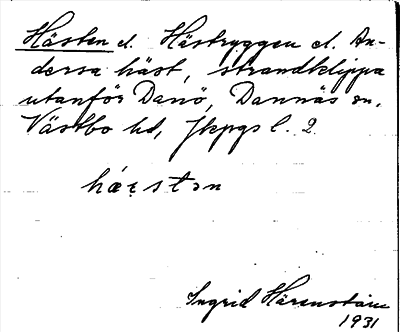 Hästen el. Hästryggen el. An-
dersa häst, strandklippa
utanför Danö, Dannäs sn,
Västbo hd, Jkpgs l. 2
hæstən
Ingrid Härenstam
1931